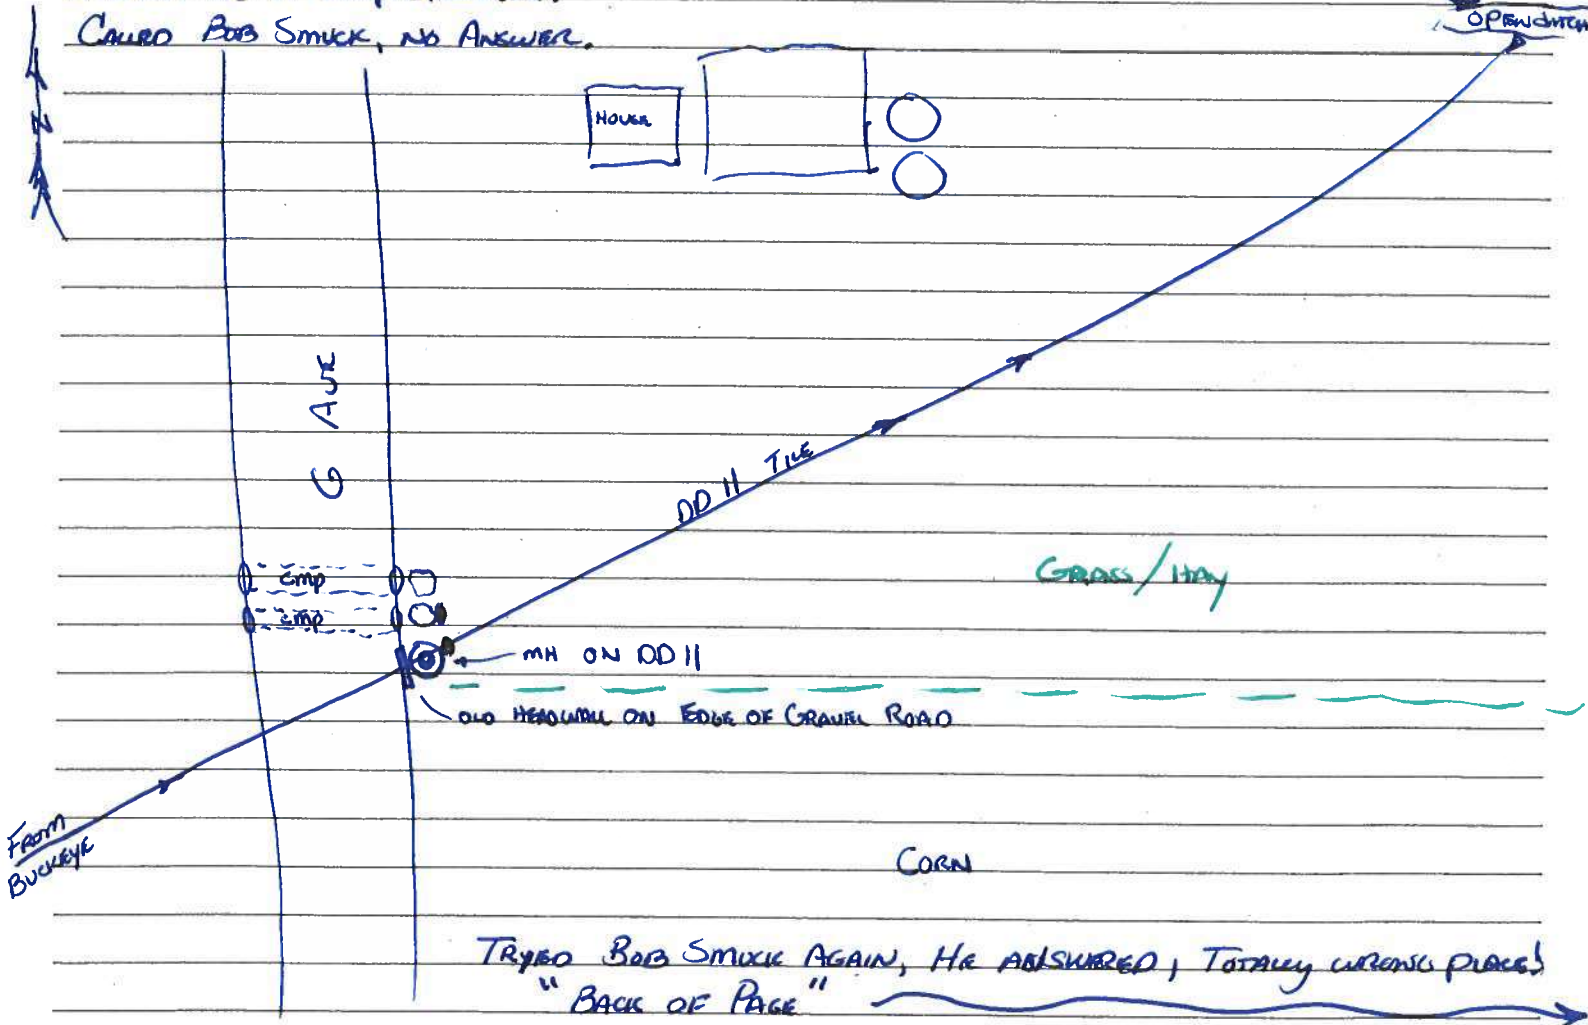 CALLED BOB SMUCK, NO ANSWER.
OPEN DITCH
N
HOUSE
G AVE
DD 11 TILE
cmp
cmp
GRASS/HAY
MH ON DD 11
OLD HEADWALL ON EDGE OF GRAVEL ROAD
FROM
BUCKEYE
CORN
TRYED BOB SMUCK AGAIN, HE ANSWERED, TOTALLY WRONG PLACE!
"BACK OF PAGE"